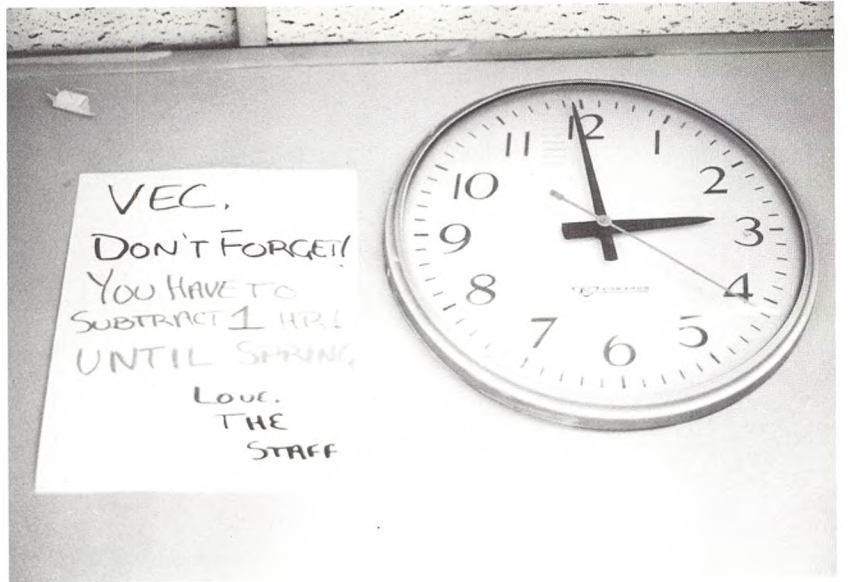 VEC,
DON'T FORGET!
YOU HAVE TO
SUBTRACT 1 HR!
UNTIL SPRING
LOVE.
THE
STAFF
12
1
2
3
4
5
6
7
8
9
10
11